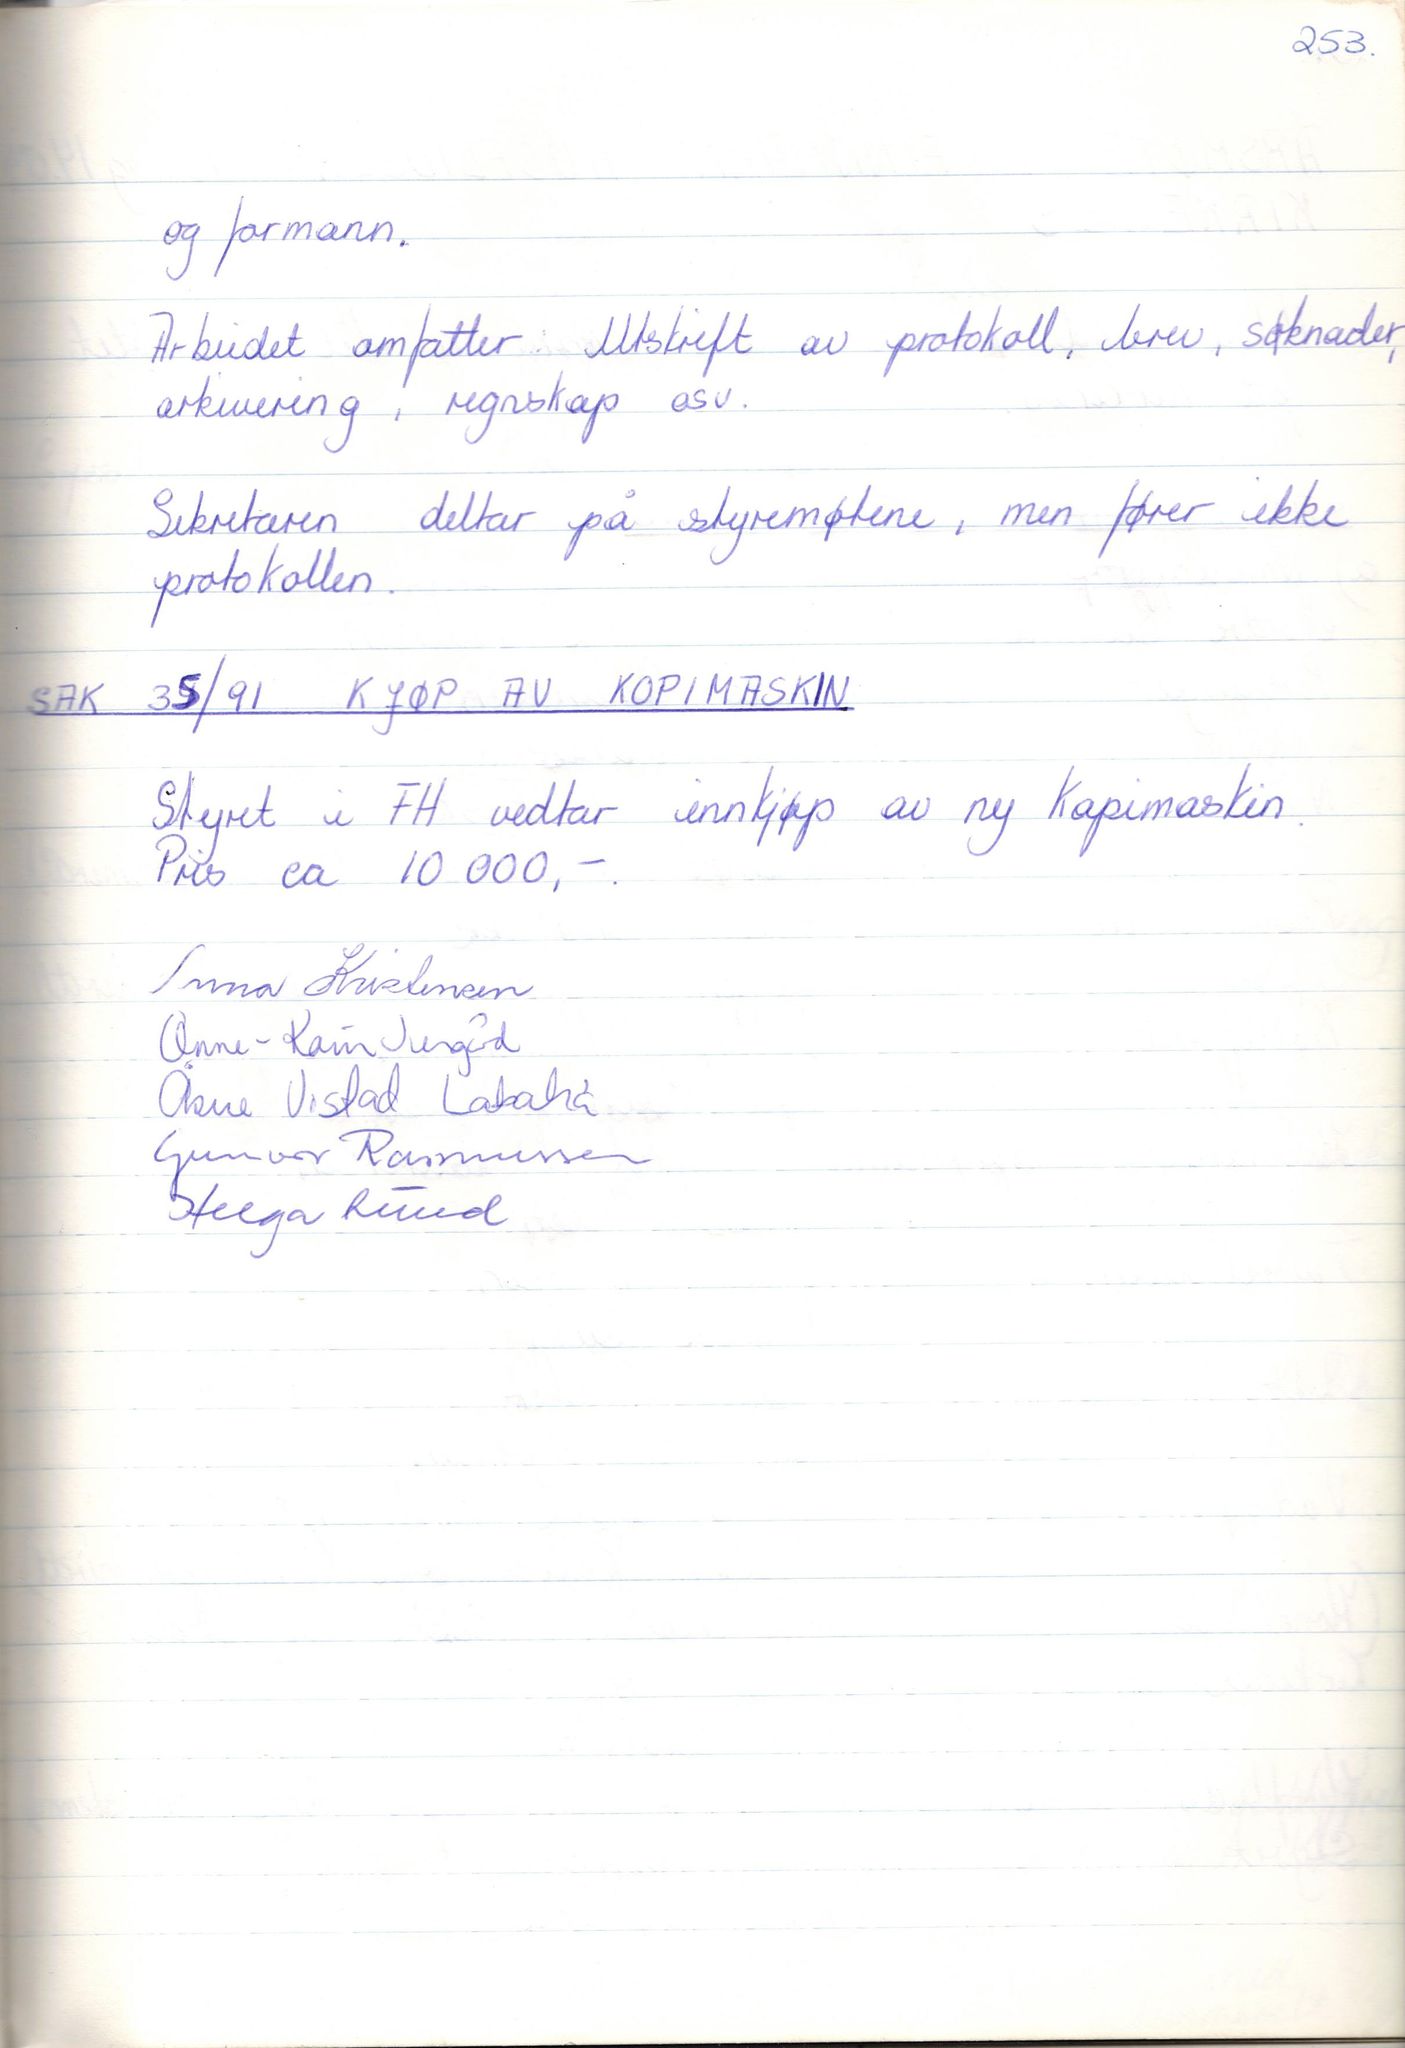 253.
og formann.
Arbeidet omfatter: Utskrift av protokoll, brev, søknader,
arkivering, regnskap osv.
Sekretæren deltar på styremøtene, men fører ikke
protokollen.
SAK 35/91 KJØP AV KOPIMASKIN
Styret i FH vedtar innkjøp av ny kopimaskin.
Pris ca 10 000,-.
Kristensen
Anne-Karin
Vistad
Gunvor Rasmussen
Helga